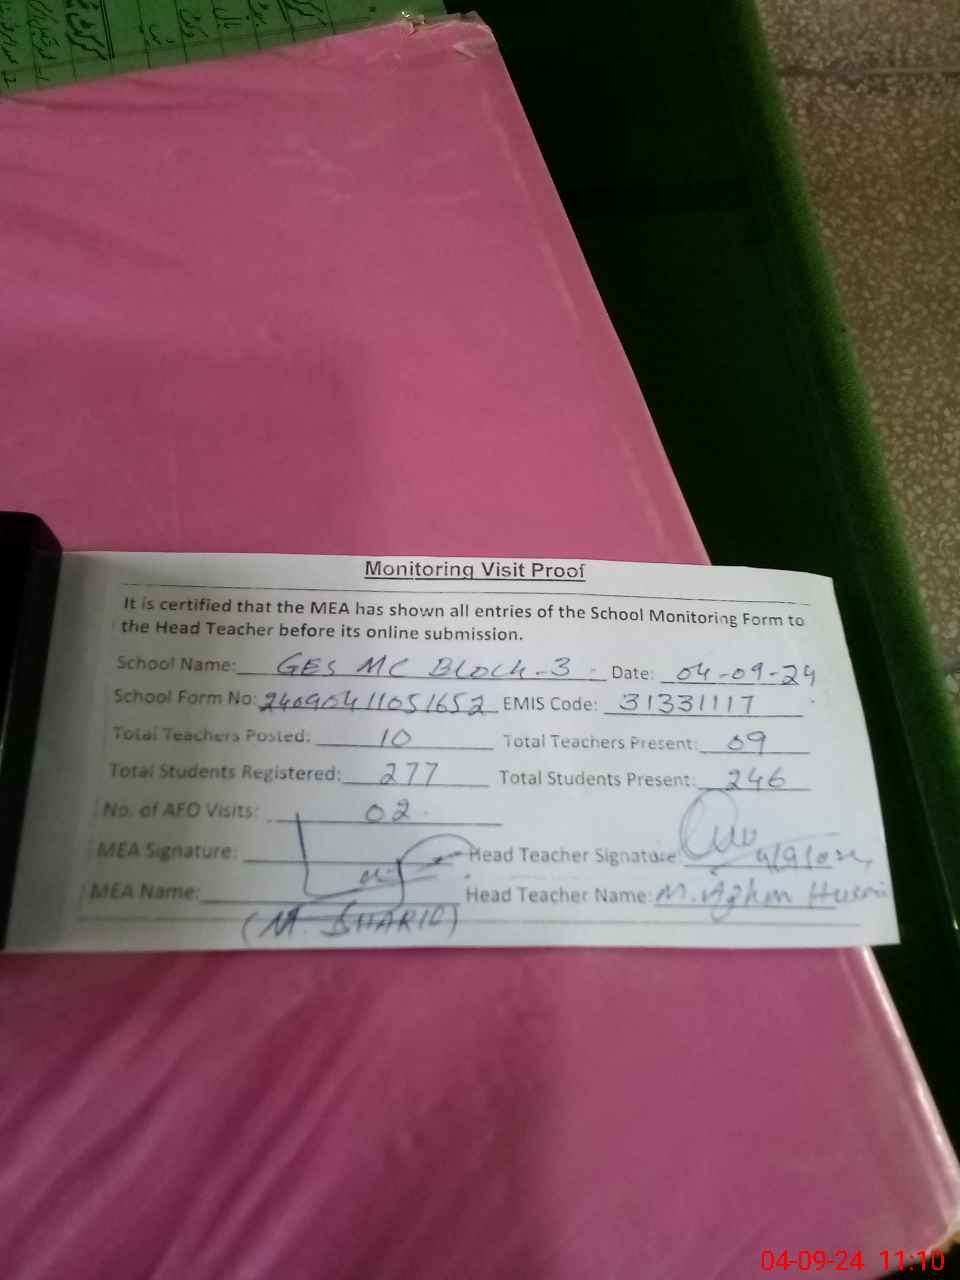 Monitoring Visit Proof
It is certified that the MEA has shown all entries of the School Monitoring Form to
the Head Teacher before its online submission.
School Name: GES MC BLOCK-3 Date: 04-09-24
School Form No: 24090411051652 EMIS Code: 31331117
Total Teachers Posted: 10 Total Teachers Present: 09
Total Students Registered: 277 Total Students Present: 246
No. of AFO Visits: 02
MEA Signature: Head Teacher Signature:
MEA Name: Head Teacher Name: M.
(M.
04-09-24 11:10